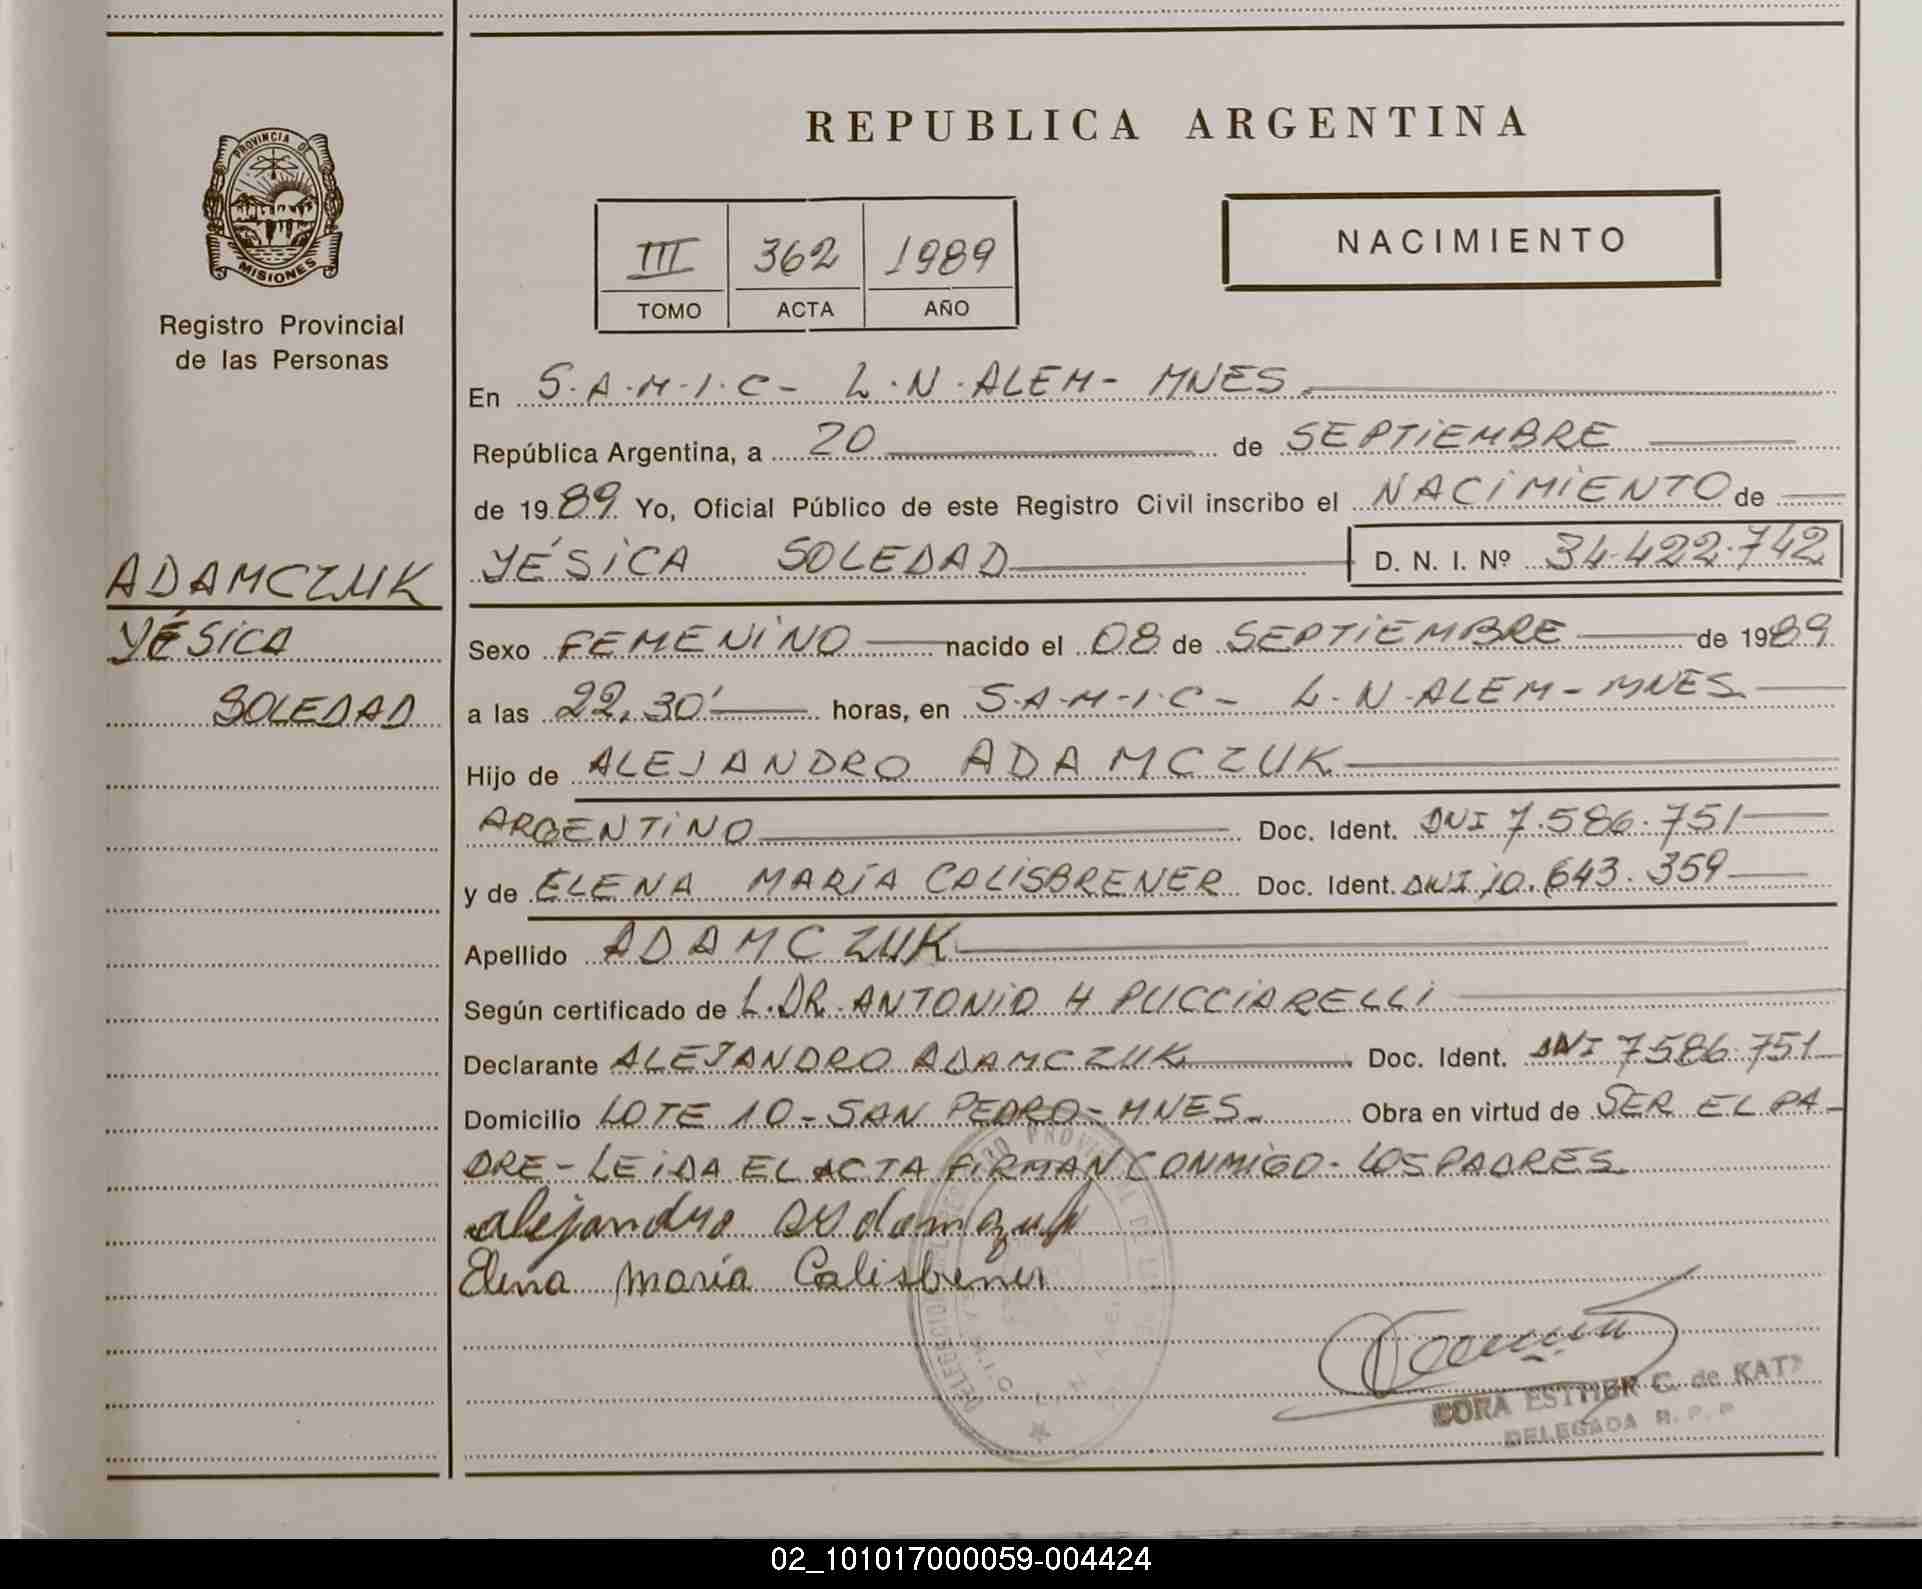 REPUBLICA ARGENTINA
PROVINCIA DE
MISIONES
Registro Provincial
de las Personas
III 362 1989
TOMO ACTA AÑO
NACIMIENTO
En S.A.M.I.C- L.N.ALEM- MNES.
República Argentina, a 20 de SEPTiEMBRE
de 1989 Yo, Oficial Público de este Registro Civil inscribo el NACiMiENTO de
YÉSiCA SOLEDAD D. N. I. Nº 34.422.742
ADAMCZUK
YÉSiCA
SOLEDAD
Sexo FEMENiNO nacido el 08 de SEPTiEMBRE de 1989
a las 22,30' horas, en S.A.M.I.C- L.N.ALEM-MNES
Hijo de ALEJANDRO ADAMCZUK
ARGENTiNO Doc. Ident. DNI 7.586.751
y de ELENA MARÍA CALiSBRENER Doc. Ident. DNI 10.643.359
Apellido ADAMCZUK
Según certificado de L.DR.ANTONiO H PUCCiARELLi
Declarante ALEJANDRO ADAMCZUK Doc. Ident. DNI 7586.751
Domicilio LOTE 10-SAN PEDRO-MNES- Obra en virtud de SER EL PA-
DRE-LEiDA EL ACTA FiRMAN CONMiGO-LOS PADRES
alejandro
Elena maría Calisbrener
DORA ESTHER C. de KATZ
DELEGADA R.P.P
02_101017000059-004424